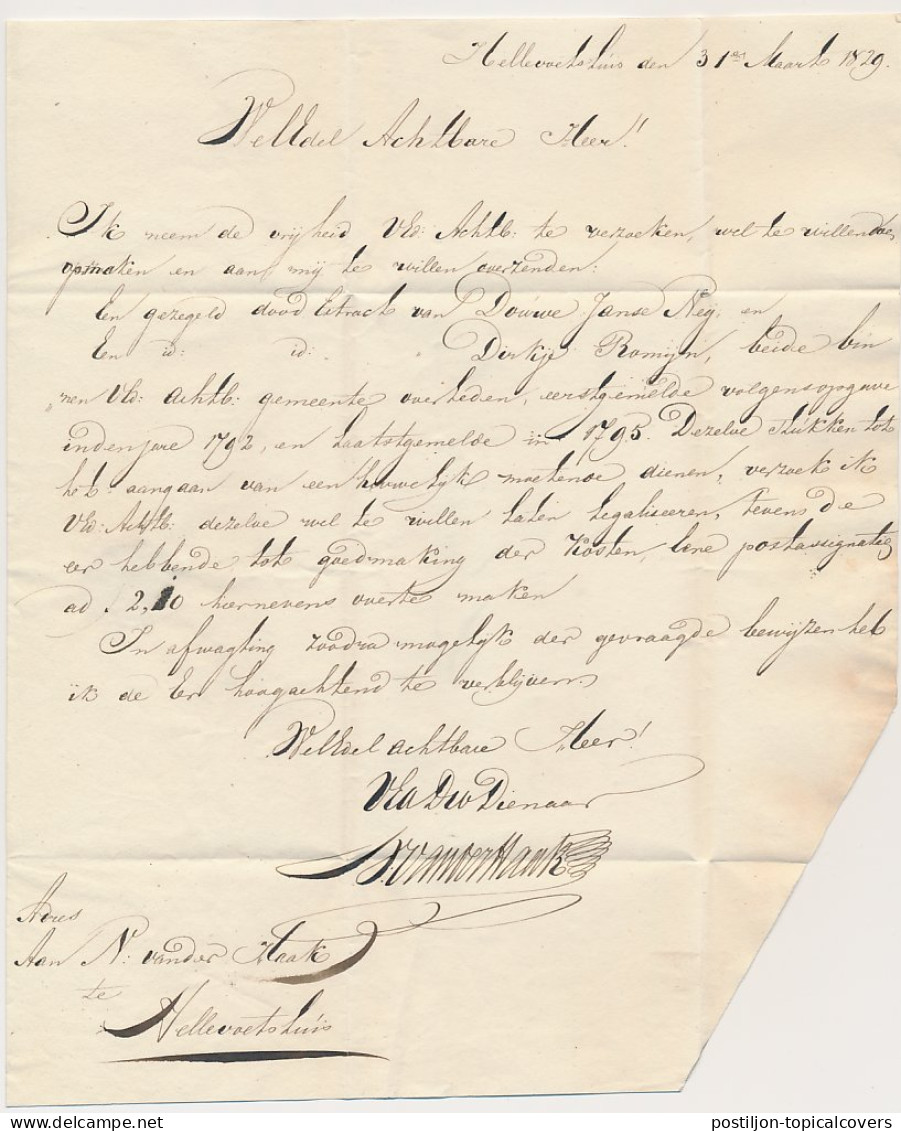 Hellevoetsluis den 31en Maart 1829.
WelEdel Achtbare Heer!
Ik neem de vrijheid UEd: Achtb: te verzoeken, wel te willen doen
opmaken en aan mij te willen overzenden:
En gezegeld dood Extract van Douwe Janse Neij, en
En id: id: Dirkje Romijn, beide bin
"nen UEd: Achtb: gemeente overleden, eerstgemelde volgens opgave
inden jare 1792, en laatstgemelde in 1795. Dezelve stukken tot
tot aangaan van een huwelijk moetende dienen, verzoek ik
UEd: Achtb: dezelve wel te willen laten legaliseeren, tevens de
eer hebbende tot goedmaking der kosten, eene postassignatie
ad 2,10 hiernevens over te maken
In afwagting zoodra mogelijk der gevraagde bewijzen heb
ik de Eer hoogachtend te verblijven.
WelEdel achtbare Heer!
UEd Dw Dienaar
N. van der Haak
Adres
Aan N: van der Haak
te
Hellevoetsluis
postiljon-topicalcovers